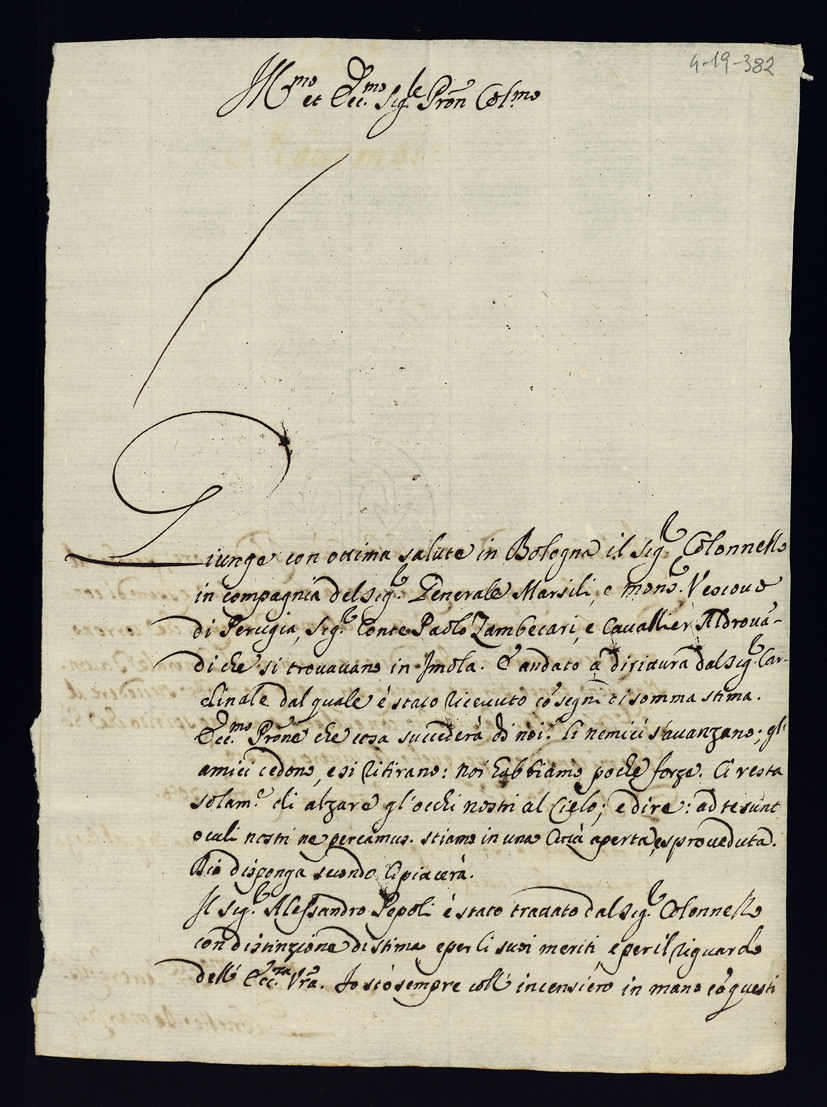 4-19-382
Ill.mo et Ecc.mo Sig.re Pron Col.mo
Giunge con ottima salute in Bologna il Sig.r Colonnello
in compagnia del Sig.r Generale Marsili, e mons.r Vescovo
di Perugia, Sig.r Conte Paolo Zambecari, e Cavallier Aldrovā-
di che si trovavano in Imola. È andato a diritura dal Sig.r Car-
dinale dal quale è stato ricevuto cō segni di somma stima.
Ecc.mo Prōne che cosa succederà di noi? Li nemici s'avanzano; gl'
amici cedono, e si ritirano: noi habbiamo poche forze. Ci resta
solam.e di alzare gl'occhi nostri al Cielo; e dire: ad te sunt
oculi nostri ne pereamus. stiamo in una Città aperta, e sproveduta.
Dio disponga secondo li piacerà.
Il Sig.r Alessandro Pepoli è stato trattato dal Sig.r Colonnello
con distinzione di stima e per li suoi meriti, e per il riguardo
dell' Ecc.za Vrā. Io stò sempre coll' incensiero in mano cō questi